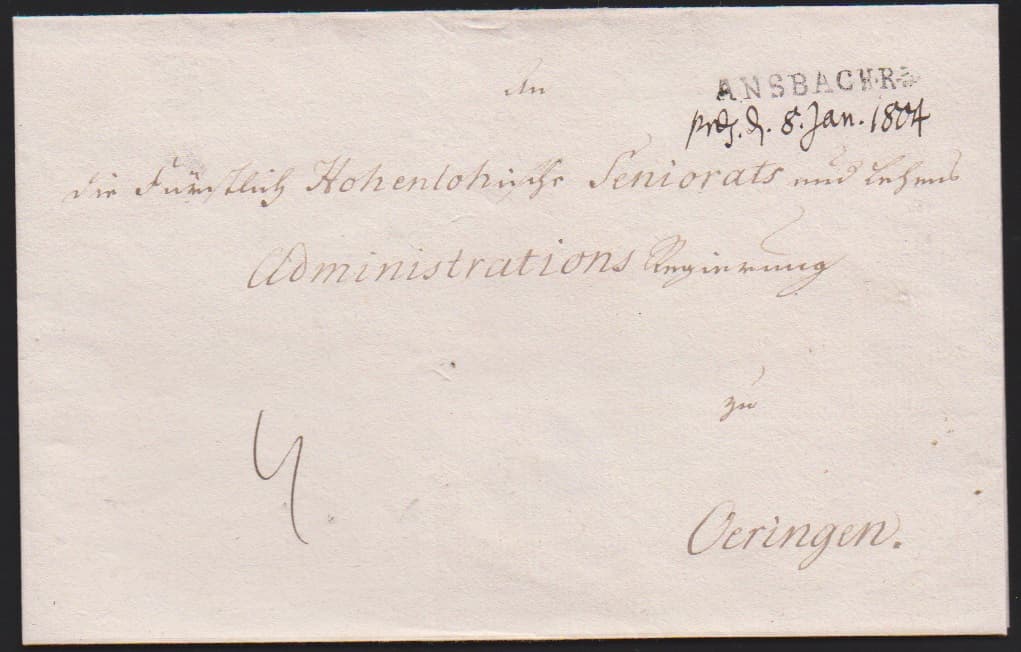 ANSBACH.R.3.
An
präs. d. 8. Jan. 1804
die Fürstlich Hohenlohische Seniorats und Lehens
Administrations Regierung
zu
4
Oeringen.